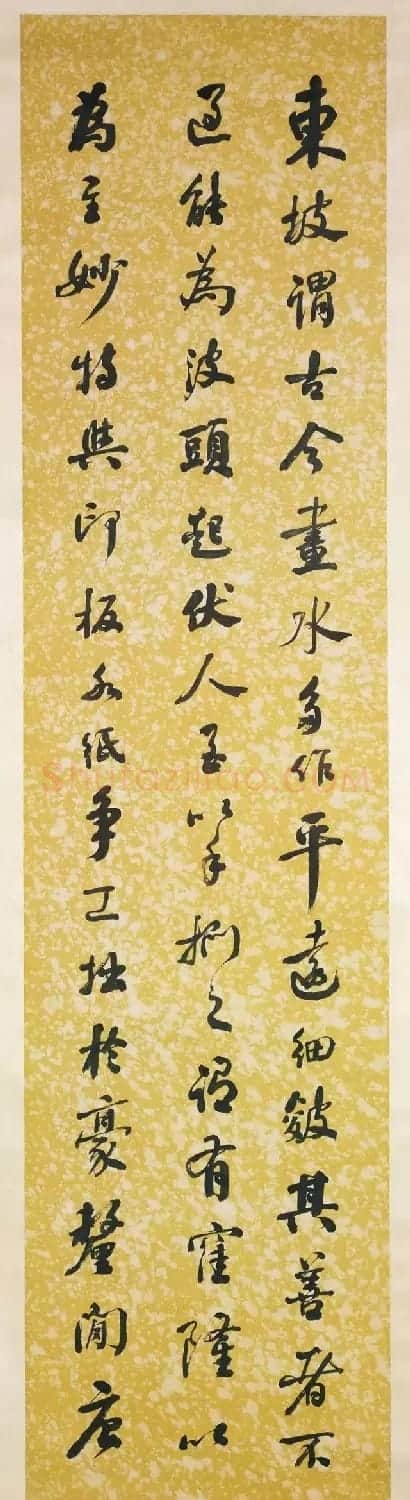 東坡謂古今畫水多作平遠細皴其善者不
過能為波頭起伏人至以手捫之謂有窪隆以
為至妙特與印板水紙爭工拙於豪釐閒唐